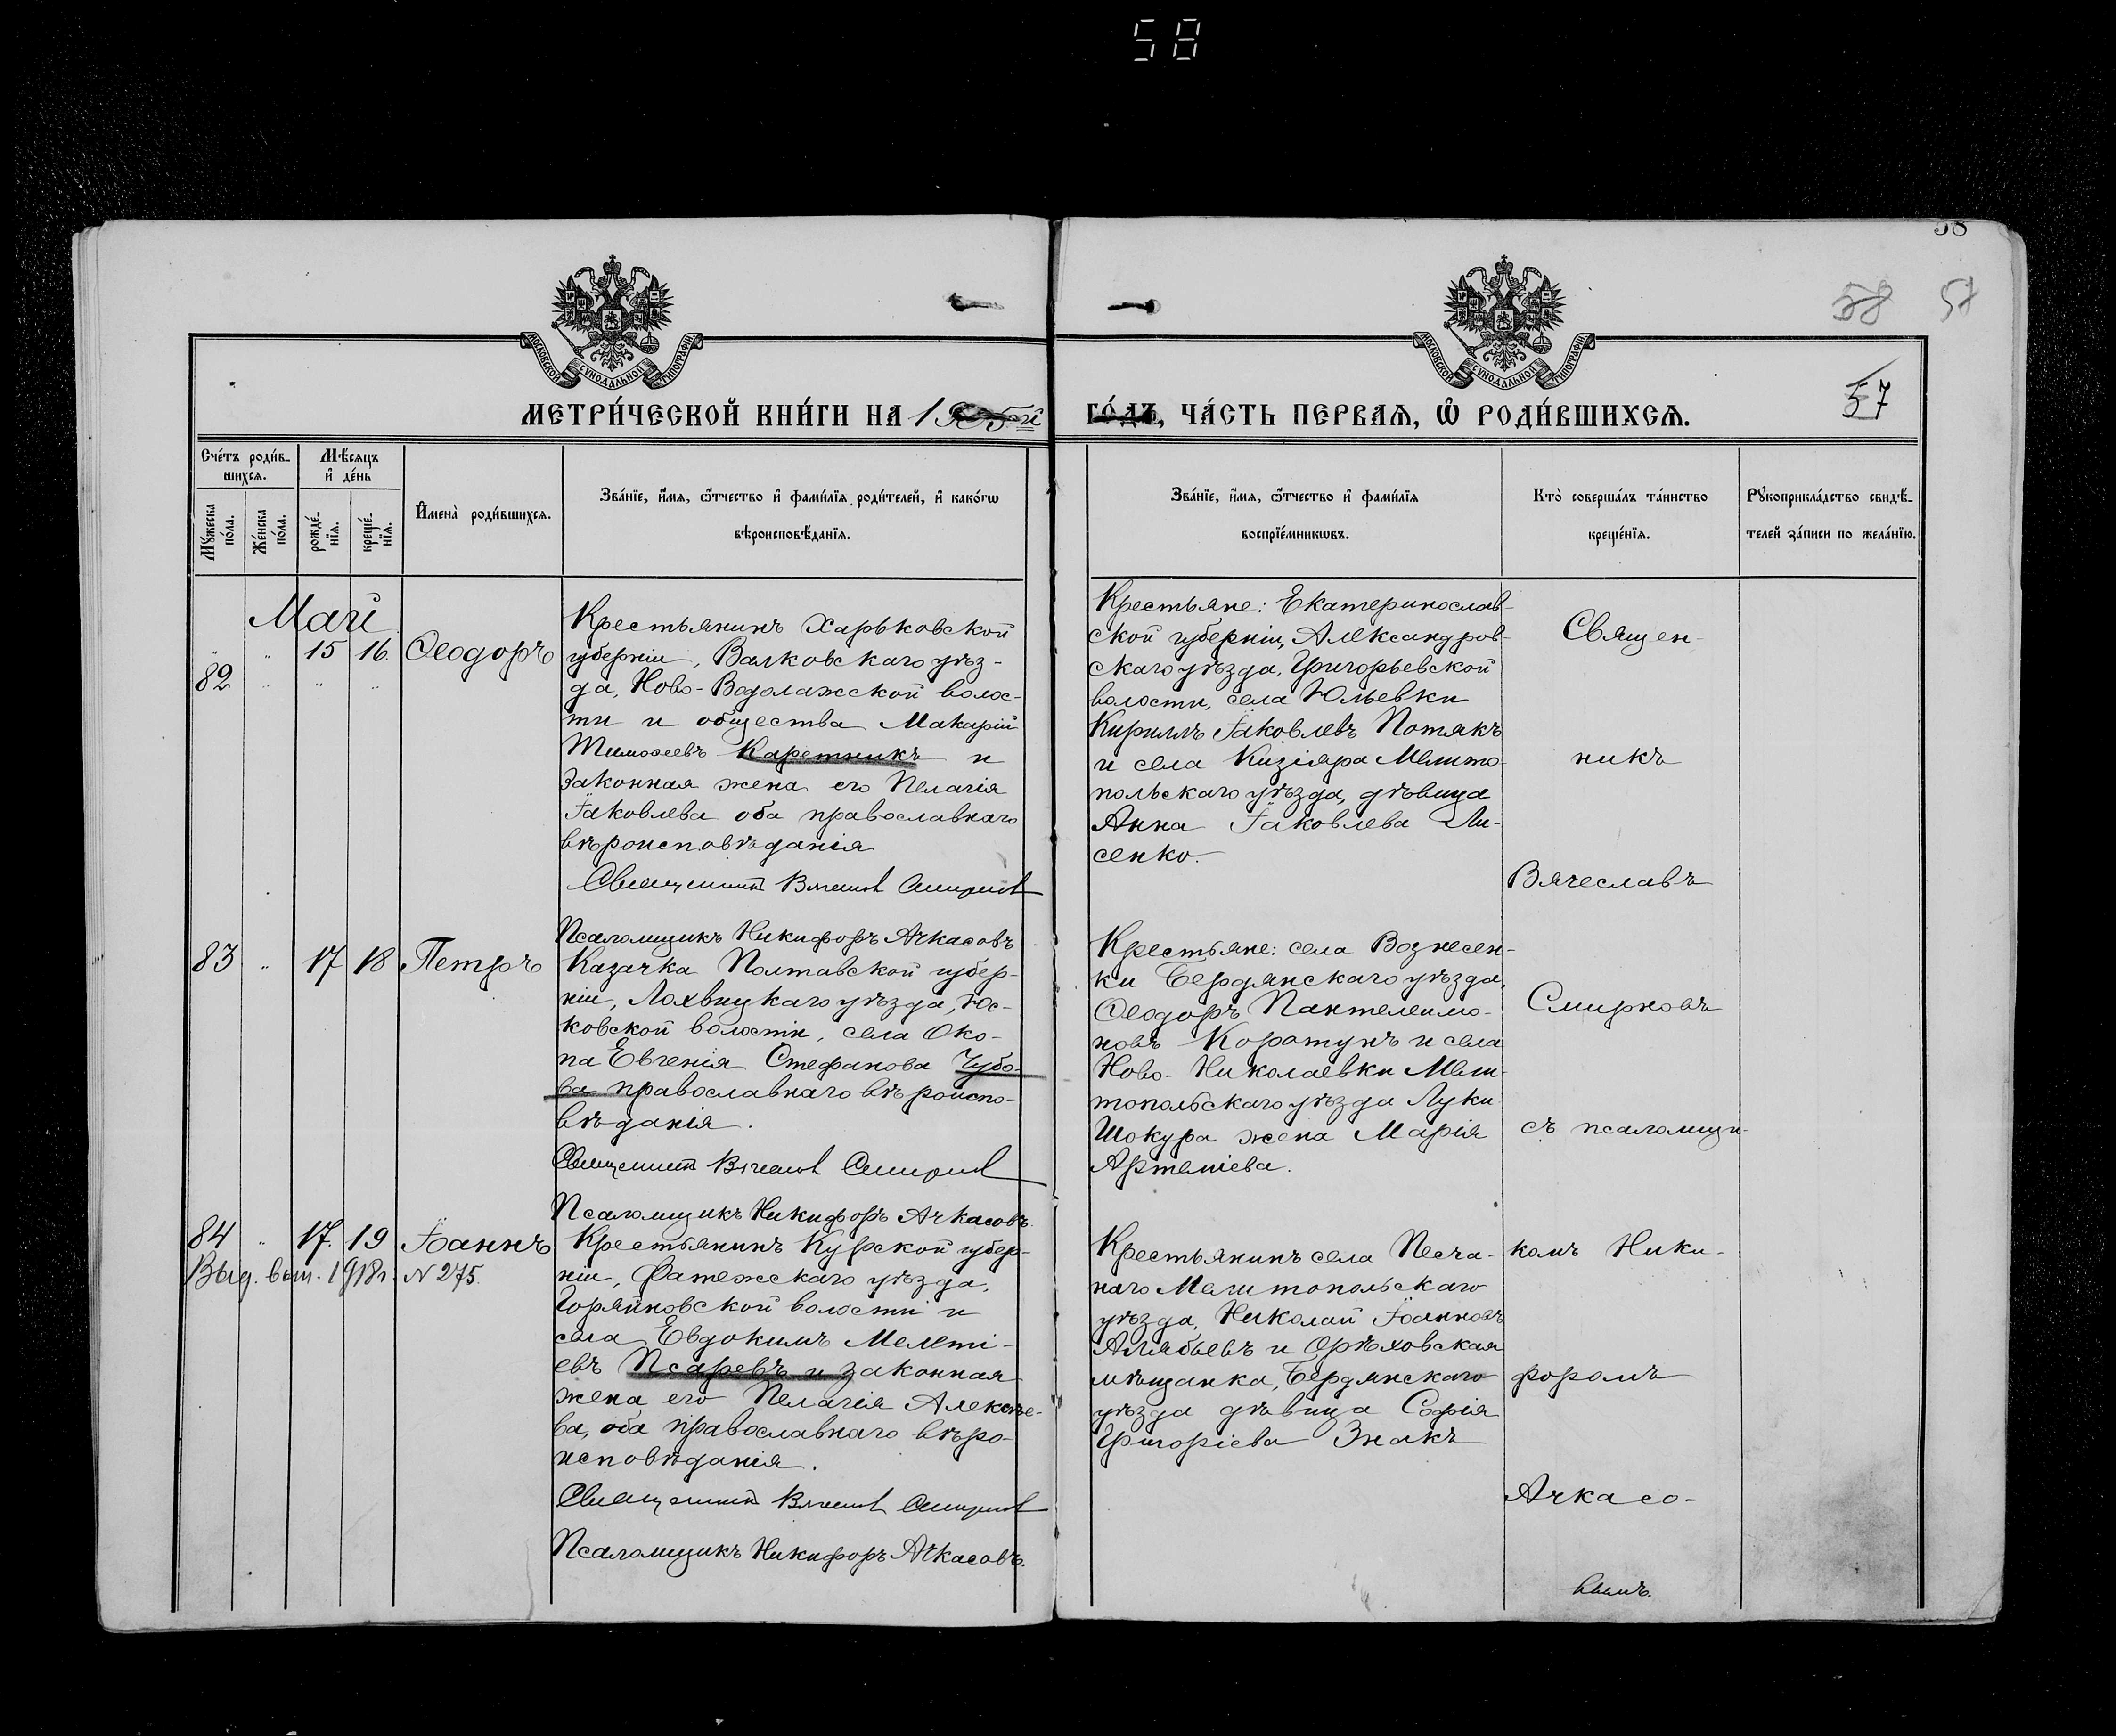 58
58
58 57
МОСКОВСКОЙ СѴНОДАЛЬНОЙ ТИПОГРАФІИ
МОСКОВСКОЙ СѴНОДАЛЬНОЙ ТИПОГРАФІИ
57
МЕТРИ́ЧЕСКОЙ КНИ́ГИ НА 1905й
ГО́ДЪ, ЧА́СТЬ ПЕРВАѦ, Ѡ҆ РОДИ́ВШИХСѦ.
Сче́тъ роди́в-
шихсѧ.
Мѣ́сѧцъ
и҆ де́нь
Мꙋ́жеска
по́ла.
Же́нска
по́ла.
рожде́-
нїѧ.
креще́-
нїѧ.
И҆мена̀ роди́вшихсѧ.
Зва́нїе, и҆́мѧ, ѻ҆́тчество и҆ фами́лїѧ роди́телей, и҆ како́гѡ
вѣроисповѣ́данїѧ.
Зва́нїе, и҆́мѧ, ѻ҆́тчество и҆ фами́лїѧ
воспрїе́мникѡвъ.
Кто̀ соверша́лъ та́инство
креще́нїѧ.
Рꙋкоприкла́дство свидѣ́-
телей за́писи по жела́нїю.
Май
82 " 15 16. Ѳеодоръ
Крестьянинъ Харьковской
губерніи, Валковскаго уѣз-
да, Ново-Водолажской волос-
ти и общества Макарій
Тимоѳеевъ Каретникъ и
законная жена его Пелагія
Іаковлева оба православнаго
вѣроисповѣданія
Священникъ Вячеславъ Смирновъ
Псаломщикъ Никифоръ Ачкасовъ
Крестьяне: Екатеринослав-
ской губерніи, Александров-
скаго уѣзда, Григорьевской
волости, села Юльевки
Кириллъ Іаковлевъ Потякъ
и села Кизіяра Мелито-
польскаго уѣзда, дѣвица
Анна Іаковлева Ли-
сенко.
83 " 17 18 Петръ
Казачка Полтавской губер-
ніи, Лохвицкаго уѣзда, Юс-
ковской волости, села Око-
па Евгенія Стефанова Чубо-
ва православнаго вѣроиспо-
вѣданія.
Священникъ Вячеславъ Смирновъ
Псаломщикъ Никифоръ Ачкасовъ.
Крестьяне: села Вознесен-
ки Бердянскаго уѣзда,
Ѳеодоръ Пантелеимо-
новъ Коротунъ и села
Ново-Николаевки Мели-
топольскаго уѣзда Луки
Шокура жена Марія
Артеміева.
84 " 17. 19 Іоаннъ
Выд. вып. 1918г. N 275.
Крестьянинъ Курской губер-
ніи, Фатежскаго уѣзда,
Горяйновской волости и
села Евдокимъ Мелеті-
евъ Псаревъ и законная
жена его Пелагія Алексѣе-
ва, оба православнаго вѣро-
исповѣданія.
Священникъ Вячеславъ Смирновъ
Псаломщикъ Никифоръ Ачкасовъ.
Крестьянинъ села Песча-
наго Мелитопольскаго
уѣзда, Николай Іоанновъ
Алябьевъ и Орѣховская
мѣщанка, Бердянскаго
уѣзда дѣвица Софія
Григоріева Знакъ
Священ-
никъ
Вячеславъ
Смирновъ
съ псаломщи-
комъ Ники-
форомъ
Ачкасо-
вымъ.